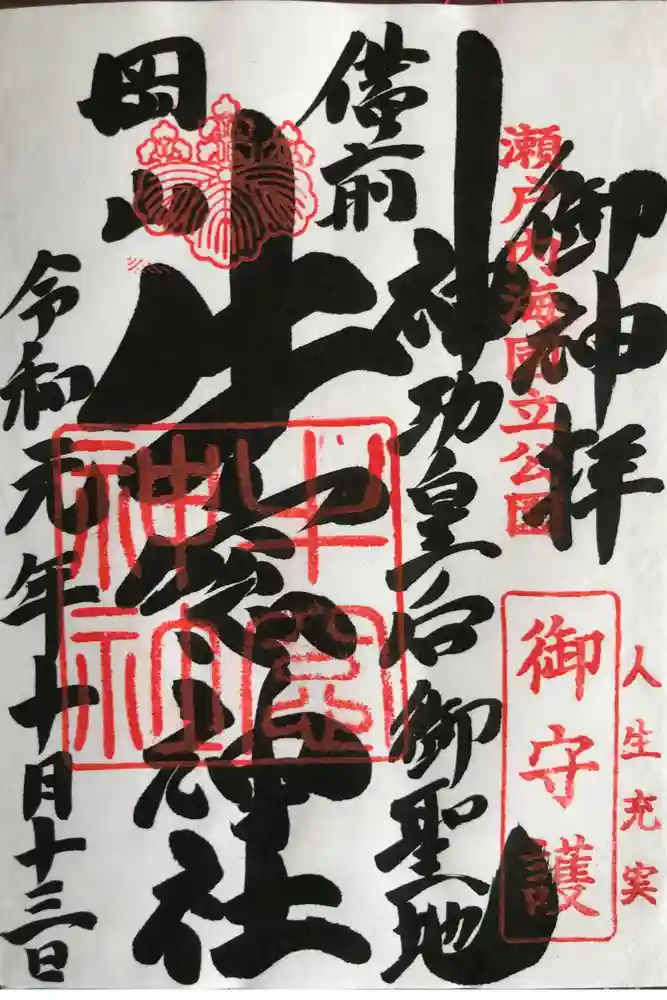 御神拝
瀬戸内海国立公園
人生充実
御守護
神功皇后御聖地
備前
牛窓神社
牛窓神社
岡山
令和元年十月十三日